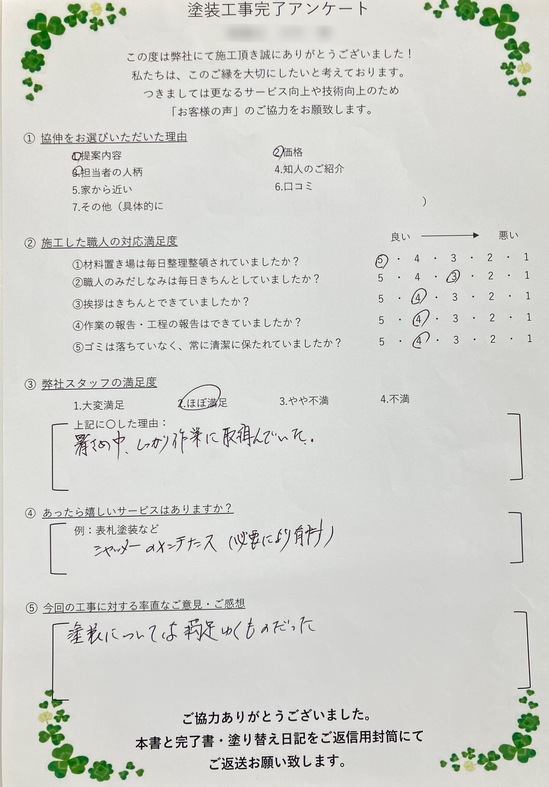 塗装工事完了アンケート
この度は弊社にて施工頂き誠にありがとうございました！
私たちは、このご縁を大切にしたいと考えております。
つきましては更なるサービス向上や技術向上のため
「お客様の声」のご協力をお願致します。
① 協伸をお選びいただいた理由
1.提案内容 2.価格
3.担当者の人柄 4.知人のご紹介
5.家から近い 6.口コミ
7.その他（具体的に ）
② 施工した職人の対応満足度 良い 悪い
①材料置き場は毎日整理整頓されていましたか？ 5 ・ 4 ・ 3 ・ 2 ・ 1
②職人のみだしなみは毎日きちんとしていましたか？ 5 ・ 4 ・ 3 ・ 2 ・ 1
③挨拶はきちんとできていましたか？ 5 ・ 4 ・ 3 ・ 2 ・ 1
④作業の報告・工程の報告はできていましたか？ 5 ・ 4 ・ 3 ・ 2 ・ 1
⑤ゴミは落ちていなく、常に清潔に保たれていましたか？ 5 ・ 4 ・ 3 ・ 2 ・ 1
③ 弊社スタッフの満足度
1.大変満足 2.ほぼ満足 3.やや不満 4.不満
上記に〇した理由：
暑さの中、しっかり作業に取組んでいた。
④ あったら嬉しいサービスはありますか？
例：表札塗装など
シャッターのメンテナス（必要により有料）
⑤ 今回の工事に対する率直なご意見・ご感想
塗装については満足ゆくものだった
ご協力ありがとうございました。
本書と完了書・塗り替え日記をご返信用封筒にて
ご返送お願い致します。